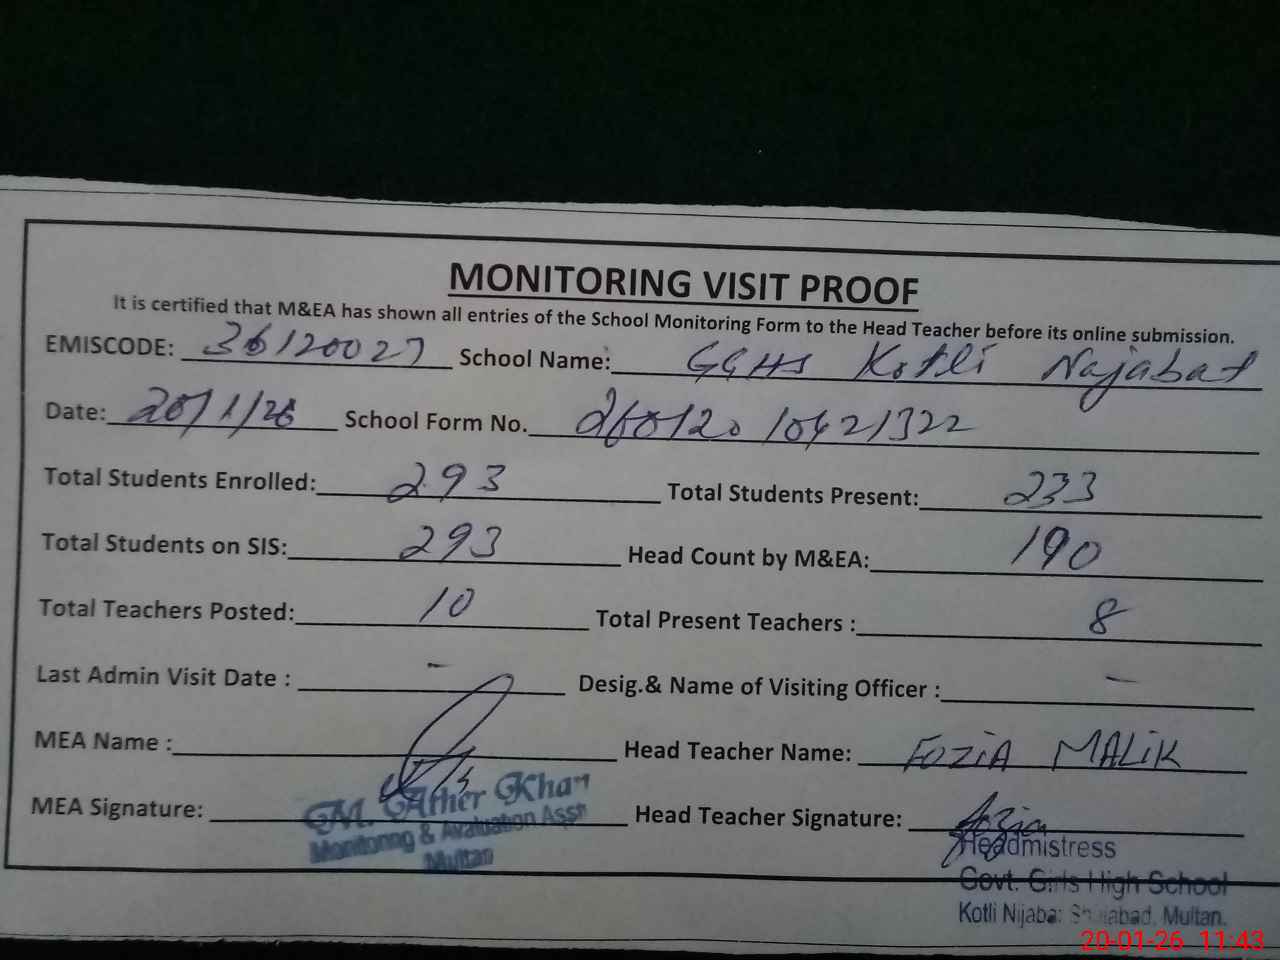 MONITORING VISIT PROOF
It is certified that M&EA has shown all entries of the School Monitoring Form to the Head Teacher before its online submission.
EMISCODE: 36120027 School Name: GGHS Kotli Najabat
Date: 20/1/26 School Form No. 26012010421322
Total Students Enrolled: 293 Total Students Present: 233
Total Students on SIS: 293 Head Count by M&EA: 190
Total Teachers Posted: 10 Total Present Teachers : 8
Last Admin Visit Date : - Desig.& Name of Visiting Officer : -
MEA Name : Head Teacher Name: FOZIA MALIK
MEA Signature: Head Teacher Signature: Fozia
M. Ather Khan
Monitoring & Avaluation Asst
Multan
Headmistress
Govt. Girls High School
Kotli Nijabat Multan.
20-01-26 11:43